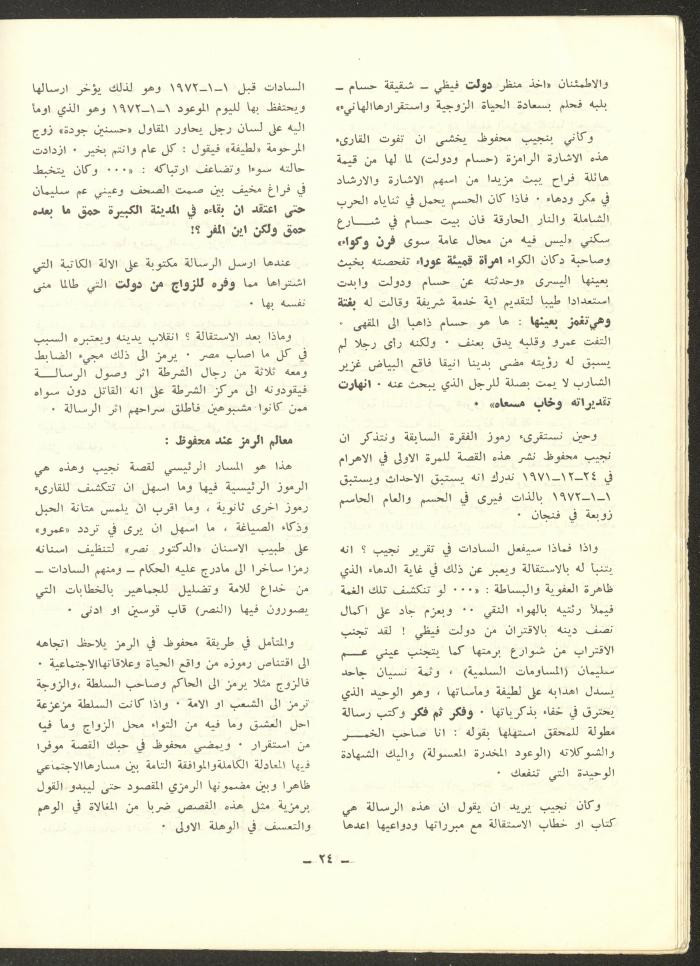 والاطمئنان «اخذ منظر دولت فيظي ــ شقيقة حسام ــ
بلبه فحلم بسعادة الحياة الزوجية واستقرارهاالهانيء»
وكأني بنجيب محفوظ يخشى ان تفوت القارىء
هذه الاشارة الرامزة (حسام ودولت) لما لها من قيمة
هائلة فراح يبث مزيدا من اسهم الاشارة والارشاد
في مكر ودهاء ٠ فاذا كان الحسم يحمل في ثناياه الحرب
الشاملة والنار الحارقة فان بيت حسام في شــــارع
سكني «ليس فيه من محال عامة سوى فرن وكواء»
وصاحبة دكان الكواء امرأة قميئة عوراء تفحصته بخبث
بعينها اليسرى «وحدثته عن حسام ودولت وابدت
استعدادا طيبا لتقديم اية خدمة شريفة وقالت له بغتة
وهي‌تغمز بعينها : ها هو حسام ذاهبا الى المقهى ٠
التفت عمرو وقلبه يدق بعنف ٠ ولكنه رأى رجلا لم
يسبق له رؤيته مضى بدينا انيقا فاقع البياض غزير
الشارب لا يمت بصلة للرجل الذي يبحث عنه ٠ انهارت
تقديراته وخاب مسعاه» ٠
وحين نستقرىء رموز الفقرة السابقة ونتذكر ان
نجيب محفوظ نشر هذه القصة للمرة الاولى في الاهرام
في ٢٤ــ١٢ــ١٩٧١ ندرك انه يستبق الاحداث ويستبق
١ــ١ــ١٩٧٢ بالذات فيرى في الحسم والعام الحاسم
زوبعة في فنجان ٠
واذا فماذا سيفعل السادات في تقرير نجيب ؟ انه
يتنبا له بالاستقالة ويعبر عن ذلك في غاية الدهاء الذي
ظاهرة العفوية والبساطة : «٠٠٠ لو تنكشف تلك الغمة
فيملأ رئتيه بالهواء النقي ٠٠ وبعزم جاد على اكمال
نصف دينه بالاقتران من دولت فيظي ! لقد تجنب
الاقتراب من شوارع برمتها كما يتجنب عيني عـــم
سليمان (المساومات السلمية) ، وثمة نسيان جاحد
يسدل اهدابه على لطيفة ومأساتها ، وهو الوحيد الذي
يحترق في خفاء بذكرياتها ٠ وفكر ثم فكر وكتب رسالة
مطولة للمحقق استهلها بقوله : انا صاحب الخمـــر
والشوكلاته (الوعود المخدرة المعسولة) واليك الشهادة
الوحيدة التي تنفعك ٠
وكأن نجيب يريد ان يقول ان هذه الرسالة هي
كتاب او خطاب الاستقالة مع مبرراتها ودواعيها اعدها
السادات قبل ١ــ١ــ١٩٧٢ وهو لذلك يؤخر ارسالها
ويحتفظ بها لليوم الموعود ١ــ١ــ١٩٧٢ وهو الذي اوما
اليه على لسان رجل يحاور المقاول «حسنين جودة» زوج
المرحومة «لطيفة» فيقول : كل عام وانتم بخير ٠ ازدادت
حالته سوءا وتضاعف ارتباكه : «٠٠٠ وكان يتخبط
في فراغ مخيف بين صمت الصحف وعيني عم سليمان
حتى اعتقد ان بقاءه في المدينة الكبيرة حمق ما بعده
حمق ولكن اين المفر ؟!
عندها ارسل الرسالة مكتوبة على الالة الكاتبة التي
اشتراها مما وفره للزواج من دولت التي طالما منى
نفسه بها ٠
وماذا بعد الاستقالة ؟ انقلاب يدينه ويعتبره السبب
في كل ما اصاب مصر ٠ يرمز الى ذلك مجيء الضابط
ومعه ثلاثة من رجال الشرطة اثر وصول الرسالـــة
فيقودونه الى مركز الشرطة على انه القاتل دون سواه
ممن كانوا مشبوهين فاطلق سراحهم اثر الرسالة ٠
معالم الرمز عند محفوظ :
هذا هو المسار الرئيسي لقصة نجيب وهذه هي
الرموز الرئيسية فيها وما اسهل ان تتكشف للقارىء
رموز اخرى ثانوية ، وما اقرب ان يلمس متانة الحبل
وذكاء الصياغة ، ما اسهل ان يرى في تردد «عمرو»
على طبيب الاسنان «الدكتور نصر» لتنظيف اسنانه
رمزا ساخرا الى مادرج عليه الحكام ــ ومنهم السادات ــ
من خداع للامة وتضليل للجماهير بالخطابات التي
يصورون فيها (النصر) قاب قوسين او ادنى ٠
والمتأمل في طريقة محفوظ في الرمز يلاحظ اتجاهه
الى اقتناص رموزه من واقع الحياة وعلاقاتهاالاجتماعية ٠
فالزوج مثلا يرمز الى الحاكم وصاحب السلطة ،والزوجة
ترمز الى الشعب او الامة ٠ واذا كانت السلطة مزعزعة
احل العشق وما فيه من التواء محل الزواج وما فيه
من استقرار ٠ ويمضي محفوظ في حبك القصة موفرا
فيها المعادلة الكاملةوالموافقة التامة بين مسارهاالاجتماعي
ظاهرا وبين مضمونها الرمزي المقصود حتى ليبدو القول
برمزية مثل هذه القصص ضربا من المغالاة في الوهم
والتعسف في الوهلة الاولى ٠
ــ ٢٤ ــ